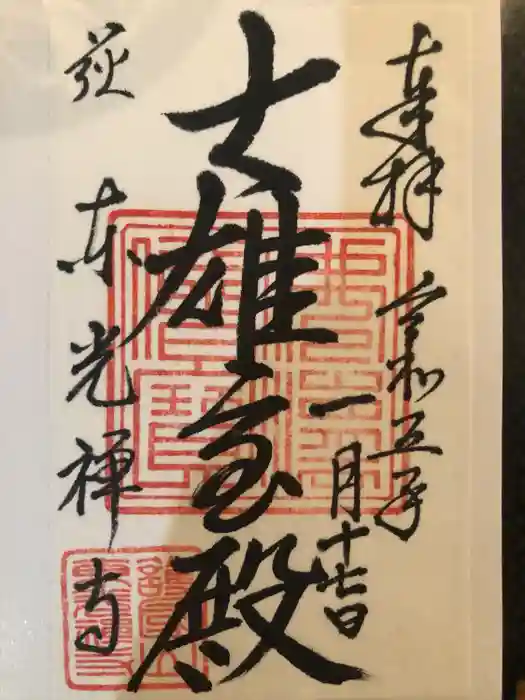 奉拝 令和五年
一月十七日
大雄宝殿
萩 東光禅寺